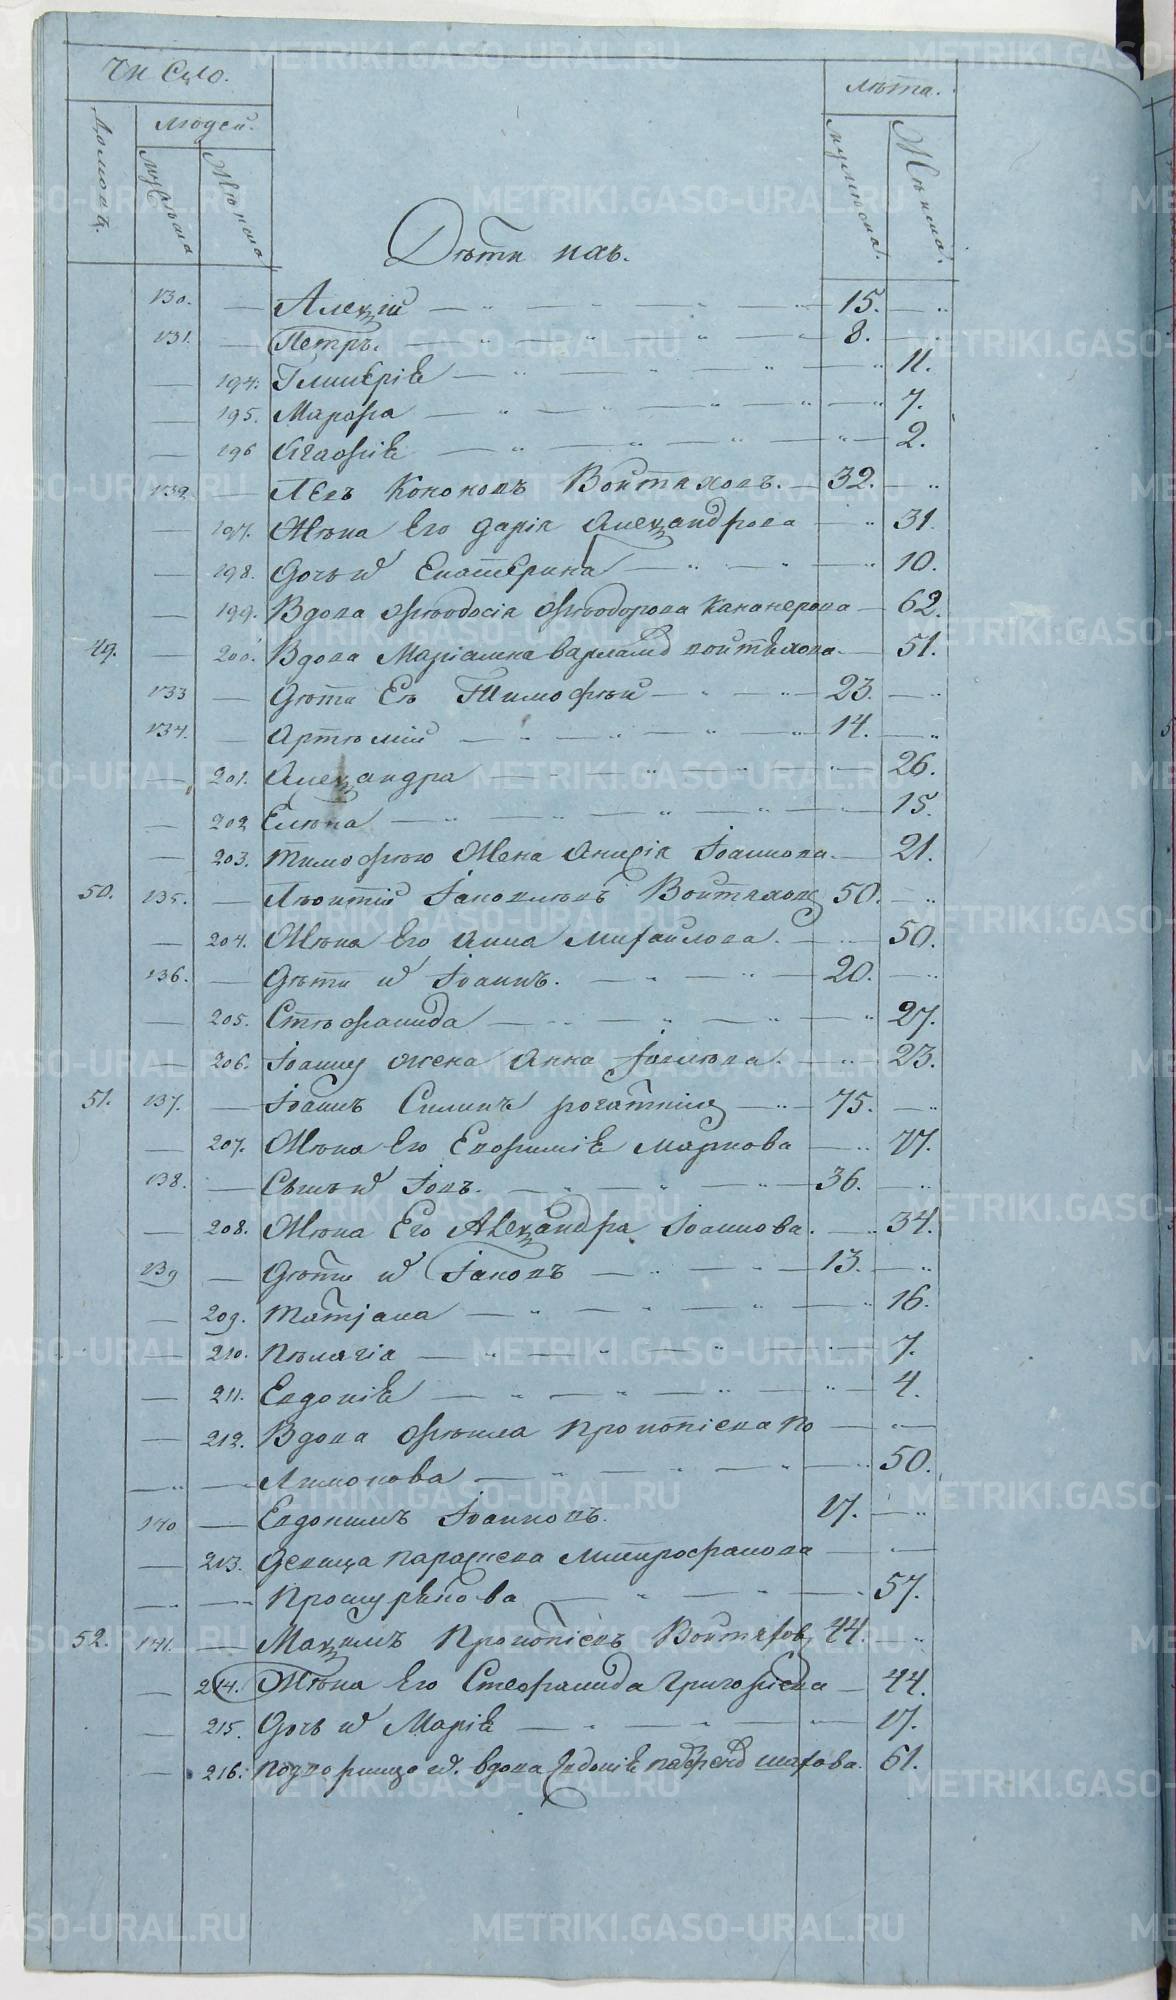 Число.
лѣта.
людей.
Домовъ.
мужеска
Женска
мужеска.
Женска.
Дѣти ихъ.
130. — Алексій — 15. —
131. — Петръ. — 8. —
— 194. Гликеріѧ — 11.
— 195. Марѳа — 7.
— 196 Агафіѧ — 2.
132 — Левъ Кононовъ Войтяховъ. — 32. —
— 197. Жена Его Дарія Александрова — 31.
— 198. Дочь иѡ Екатерина — 10.
— 199. Вдова Ѳеодосія Ѳеодорова — 62.
49. — 200. Вдова Маріамна Варлам. Войтѣхова. — 51.
133 — Дѣти Еѧ Тимоѳей — 23. —
134. — Артемій — 14. —
— 201. Александра — 26.
— 202 Елена — 15.
— 203. Тимоѳею Жена Анисія Іоаннова. — 21.
50. 135. — Леонтій Іаковлевъ Войтяховъ 50. —
— 204. Жена Его Анна Михайлова. — 50.
136. — Дѣти иѡ Іоаннъ. — 20. —
— 205. Стефанида — 27.
— 206. Іоанну жена Анна Іовлева. — 23.
51. 137. — Іоаннъ Силинъ — 75. —
— 207. Жена Его Евфиміѧ Маркова — 77.
138. — Сынъ иѡ Іовъ. — 36. —
— 208. Жена Его Александра Іоаннова. — 34.
139 — Дѣти иѡ Іаковъ — 13. —
— 209. Татіана — 16.
— 210. Пелагіа — 7.
— 211. Евдокіѧ — 4.
— 212. Вдова Ѳекла Прокопіева По — —
— — Лимонова — 50.
140 — Евдокимъ Іоанновъ. 17. —
— 213. Девица Параскева Митрофанова — —
— — Проскурѣкова — 57.
52. 141. — Максимъ Прокопіевъ Войтяхов, 44. —
— 214. Жена Его Стефанида Григоріева — 44.
— 215. Дочь иѡ Маріѧ — 17.
— 216. Подворница иѡ. вдова Евдокіѧ шахова. 61.
METRIKI.GASO-URAL.RU